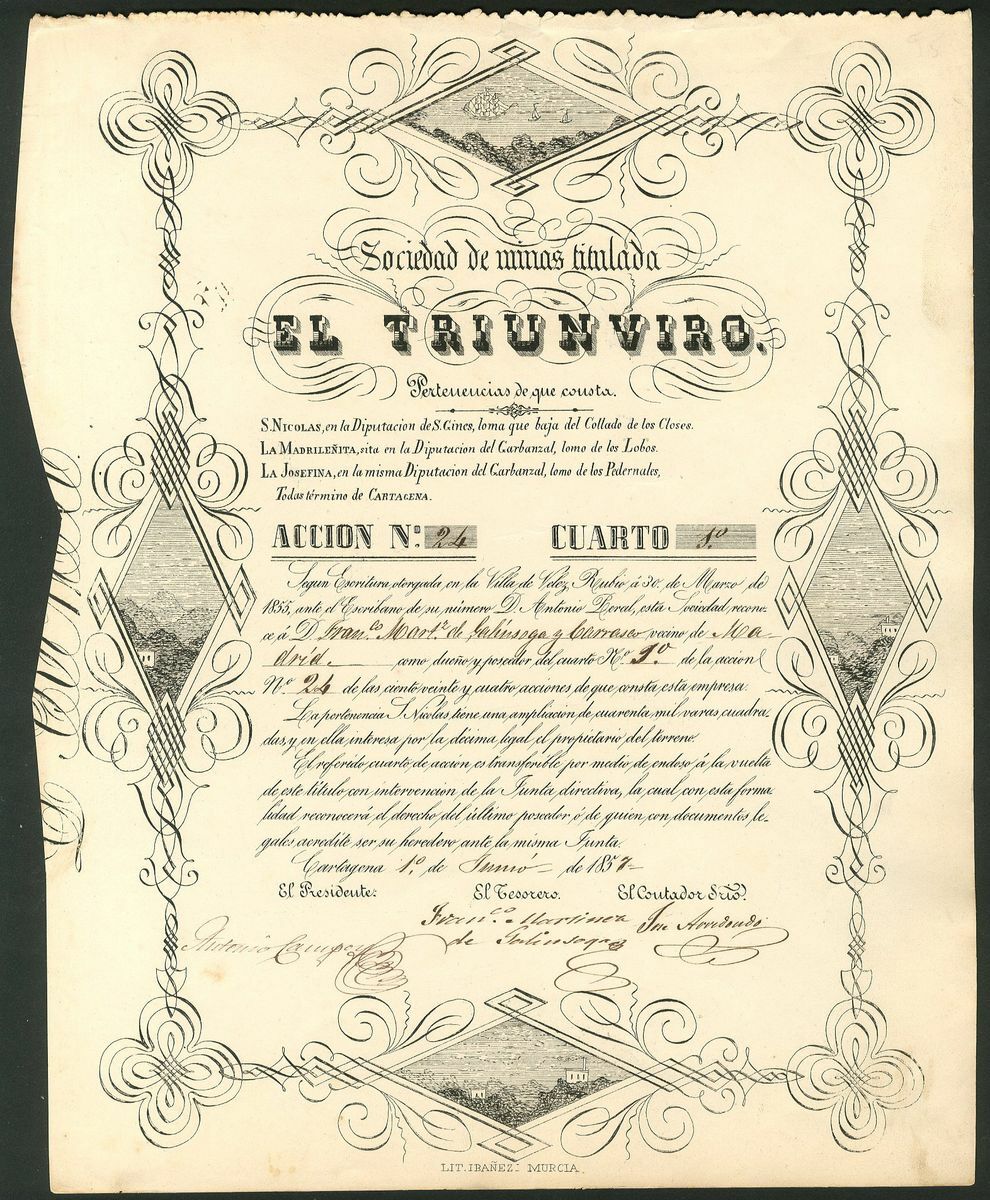 Sociedad de minas titulada
EL TRIUNVIRO.
Pertenencias de que consta.
S. NICOLAS, en la Diputacion de S. Gines, loma que baja del Collado de los Closes.
LA MADRILEÑITA, sita en la Diputacion del Garbanzal, lomo de los Lobos.
LA JOSEFINA, en la misma Diputacion del Garbanzal, lomo de los Pedernales,
Todas término de CARTAGENA.
ACCION N.º 24 CUARTO 1º
Segun Escritura otorgada en la Villa de Velez Rubio á 30 de Marzo de
1855, ante el Escribano de su número D. Antonio Porcel, esta Sociedad recono-
ce á D. Fran.co Mart.z de Galinsoga y Carrasco vecino de Ma-
drid. como dueño y poseedor del cuarto N.º 1º de la accion
N.º 24 de las ciento veinte y cuatro acciones de que consta esta empresa.
La pertenencia S. Nicolas, tiene una ampliacion de cuarenta mil varas cuadra-
das, y en ella interesa por la décima legal el propietario del terreno.
El referido cuarto de accion es transferible por medio de endoso á la vuelta
de este título con intervencion de la Junta directiva, la cual con esta forma-
lidad reconocerá el derecho del último poseedor ó de quien con documentos le-
gales acredite ser su heredero ante la misma Junta.
Cartagena 1º de Junio de 1857
El Presidente. El Tesorero. El Contador Srio.
Antonio Fran.co Martinez de Galinsoga Jse Arredondo
LIT. IBAÑEZ: MURCIA.